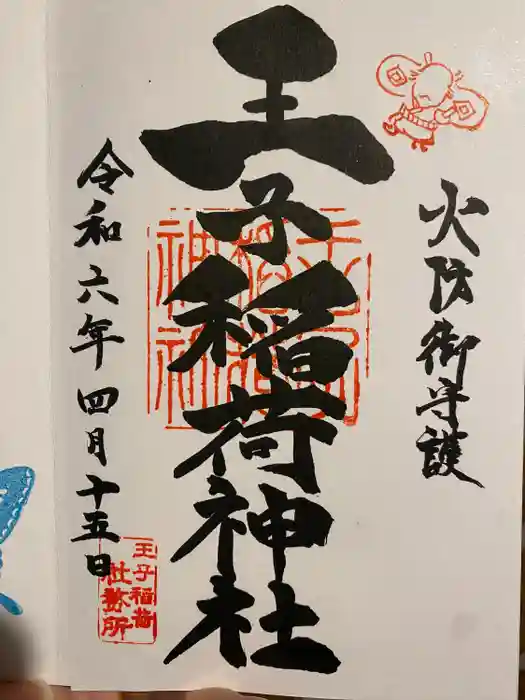 火防御守護
王子稲荷神社
王子稲荷神社
令和六年四月十五日
王子稲荷
社務所